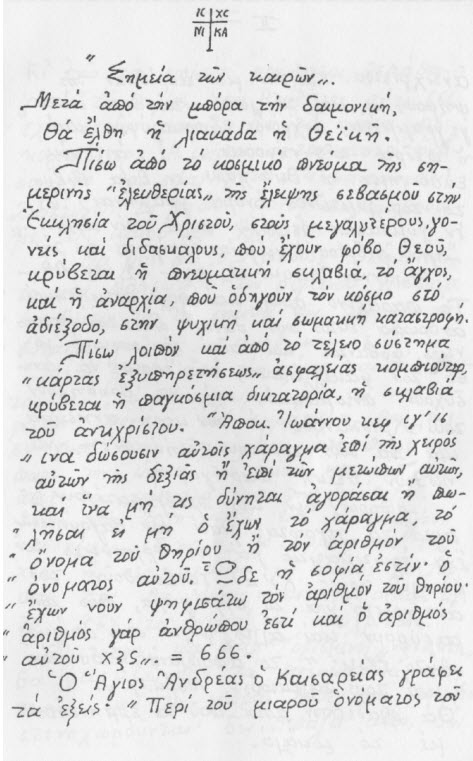 IC XC
NI KA
"Σημεία τῶν καιρῶν„.
Μετά ἀπό τήν μπόρα τήν δαιμονική,
θά ἔλθη ἡ λιακάδα ἡ Θεϊκή.
Πίσω ἀπό τό κοσμικό πνεῦμα τῆς ση-
μερινῆς "ἐλευθερίας„ τῆς ἔλειψης σεβασμοῦ στήν
Ἐκκλησία τοῦ Χριστοῦ, στούς μεγαλυτέρους, γο-
νεῖς καί διδασκάλους, πού ἔχουν φόβο Θεοῦ,
κρύβεται ἡ πνευματική σκλαβιά, τό ἄγχος,
καί ἡ ἀναρχία, πού ὁδηγοῦν τόν κόσμο στό
ἀδιέξοδο, στήν ψυχική καί σωματική καταστροφή.
Πίσω λοιπόν καί ἀπό τό τέλειο συστημα
"κάρτας ἐξυπηρετήσεως„ ἀσφαλείας κομπιοῦτερ,
κρύβεται ἡ παγκόσμια δικτατορία, ἡ σκλαβιά
τοῦ ἀντιχρίστου. "Ἀποκ. Ἰωάννου κεφ ιγ' 16
"ἵνα δώσουσιν αὐτοῖς χάραγμα ἐπί τῆς χειρός
αὐτῶν τῆς δεξιᾶς ἤ ἐπί τῶν μετώπων αὐτῶν,
και ἵνα μή τις δύνηται ἀγοράσαι ἤ πω-
"λῆσαι εἰ μή ὁ ἔχων το χάραγμα, τό
"ὄνομα τοῦ θηρίου ἤ τόν ἀριθμόν τοῦ
"ὀνόματος αὐτοῦ. Ὧδε ἡ σοφία ἐστίν· ὁ
"ἔχων νοῦν ψηφισάτω τόν ἀριθμόν τοῦ θηρίου·
"ἀριθμός γάρ ἀνθρώπου ἐστί καί ὁ ἀριθμός
"αὐτοῦ χξς„. = 666.
Ὁ Ἅγιος Ἀνδρέας ὁ Καισαρείας γράφει
τά ἑξῆς: "Περί τοῦ μιαροῦ ὀνόματος τοῦ